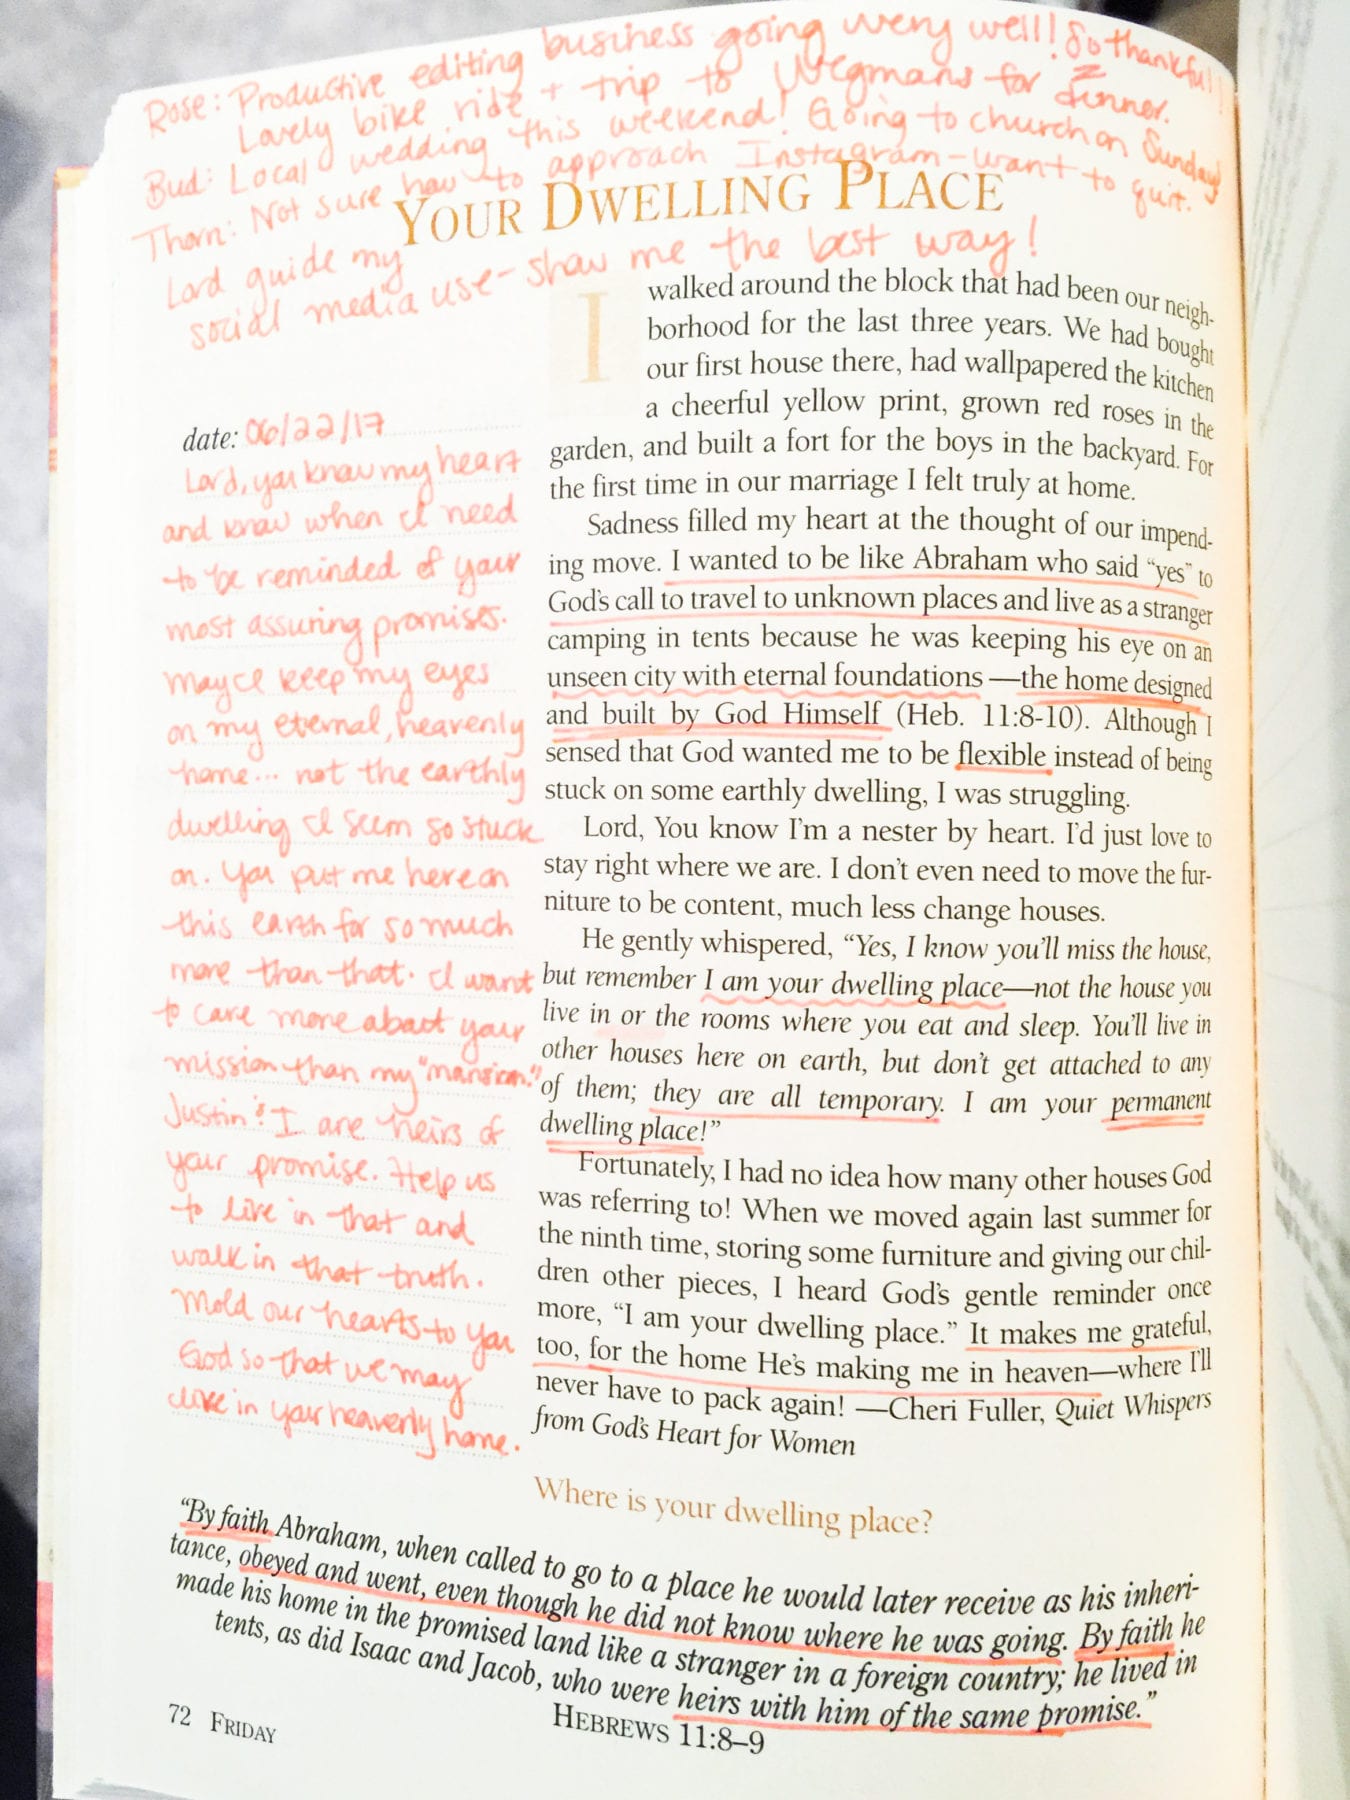 Rose: Productive editing business going very well! So thankful!
Lovely bike ride + trip to Wegmans for dinner.
Bud: Local wedding this weekend! Going to church on Sunday!
Thorn: Not sure how to approach Instagram - want to quit.
Lord guide my
social media use - show me the best way!
YOUR DWELLING PLACE
I walked around the block that had been our neigh-
borhood for the last three years. We had bought
our first house there, had wallpapered the kitchen
a cheerful yellow print, grown red roses in the
garden, and built a fort for the boys in the backyard. For
the first time in our marriage I felt truly at home.
Sadness filled my heart at the thought of our impend-
ing move. I wanted to be like Abraham who said "yes" to
God's call to travel to unknown places and live as a stranger
camping in tents because he was keeping his eye on an
unseen city with eternal foundations—the home designed
and built by God Himself (Heb. 11:8-10). Although I
sensed that God wanted me to be flexible instead of being
stuck on some earthly dwelling, I was struggling.
Lord, You know I'm a nester by heart. I'd just love to
stay right where we are. I don't even need to move the fur-
niture to be content, much less change houses.
He gently whispered, "Yes, I know you'll miss the house,
but remember I am your dwelling place—not the house you
live in or the rooms where you eat and sleep. You'll live in
other houses here on earth, but don't get attached to any
of them; they are all temporary. I am your permanent
dwelling place!"
Fortunately, I had no idea how many other houses God
was referring to! When we moved again last summer for
the ninth time, storing some furniture and giving our chil-
dren other pieces, I heard God's gentle reminder once
more, "I am your dwelling place." It makes me grateful,
too, for the home He's making me in heaven—where I'll
never have to pack again! —Cheri Fuller, Quiet Whispers
from God's Heart for Women
date: 06/22/17
Lord, you know my heart
and know when I need
to be reminded of your
most assuring promises.
May I keep my eyes
on my eternal, heavenly
home... not the earthly
dwelling I seem so stuck
on. You put me here on
this earth for so much
more than that. I want
to care more about your
mission than my "mansion."
Justin & I are heirs of
your promise. Help us
to live in that and
walk in that truth.
Mold our hearts to you
God so that we may
live in your heavenly home.
Where is your dwelling place?
"By faith Abraham, when called to go to a place he would later receive as his inheri-
tance, obeyed and went, even though he did not know where he was going. By faith he
made his home in the promised land like a stranger in a foreign country; he lived in
tents, as did Isaac and Jacob, who were heirs with him of the same promise."
HEBREWS 11:8–9
72 FRIDAY